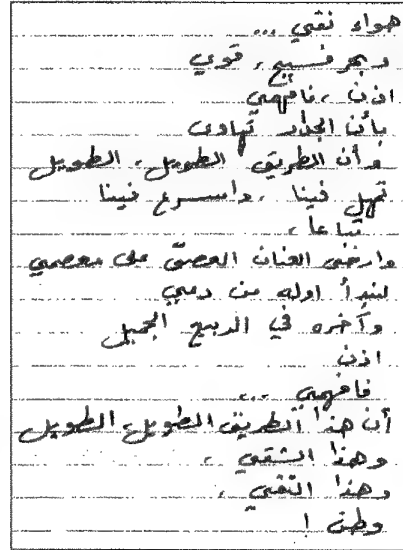 هواء نقي ...
وبحر فسيح، قوي
اذن ،فافهمي
بأن الجدار تهاوى
وأن الطريق الطويل، الطويل
تمهل فينا ،واسرع فينا
تباعا،
وارخى العنان العصيّ على معصمي
لنبدأ اوله من دمي
وآخره في الربيع الجميل
اذن
فافهمي ...
أن هذا الطريق الطويل، الطويل
وهذا الشقي ،
وهذا النقي ،
وطن !